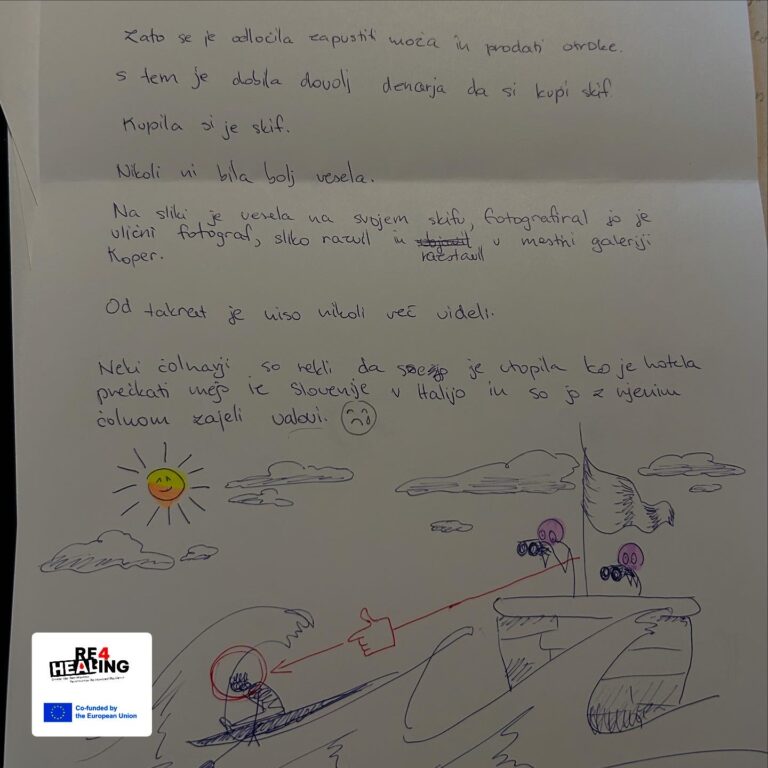 Zato se je odločila zapustit moža in prodati otroke.
S tem je dobila dovolj denarja da si kupi skif.
Kupila si je skif.
Nikoli ni bila bolj vesela.
Na sliki je vesela na svojem skifu, fotografiral jo je
ulični fotograf, sliko razvil in v mestni galeriji
razstavil
Koper.
Od takrat je niso nikoli več videli.
Neki čolnarji so rekli da se je utopila ko je hotela
prečkati mejo iz Slovenije v Italijo in so jo z njenim
čolnom zajeli valovi.
RE4
HEALING
Co-funded by
the European Union